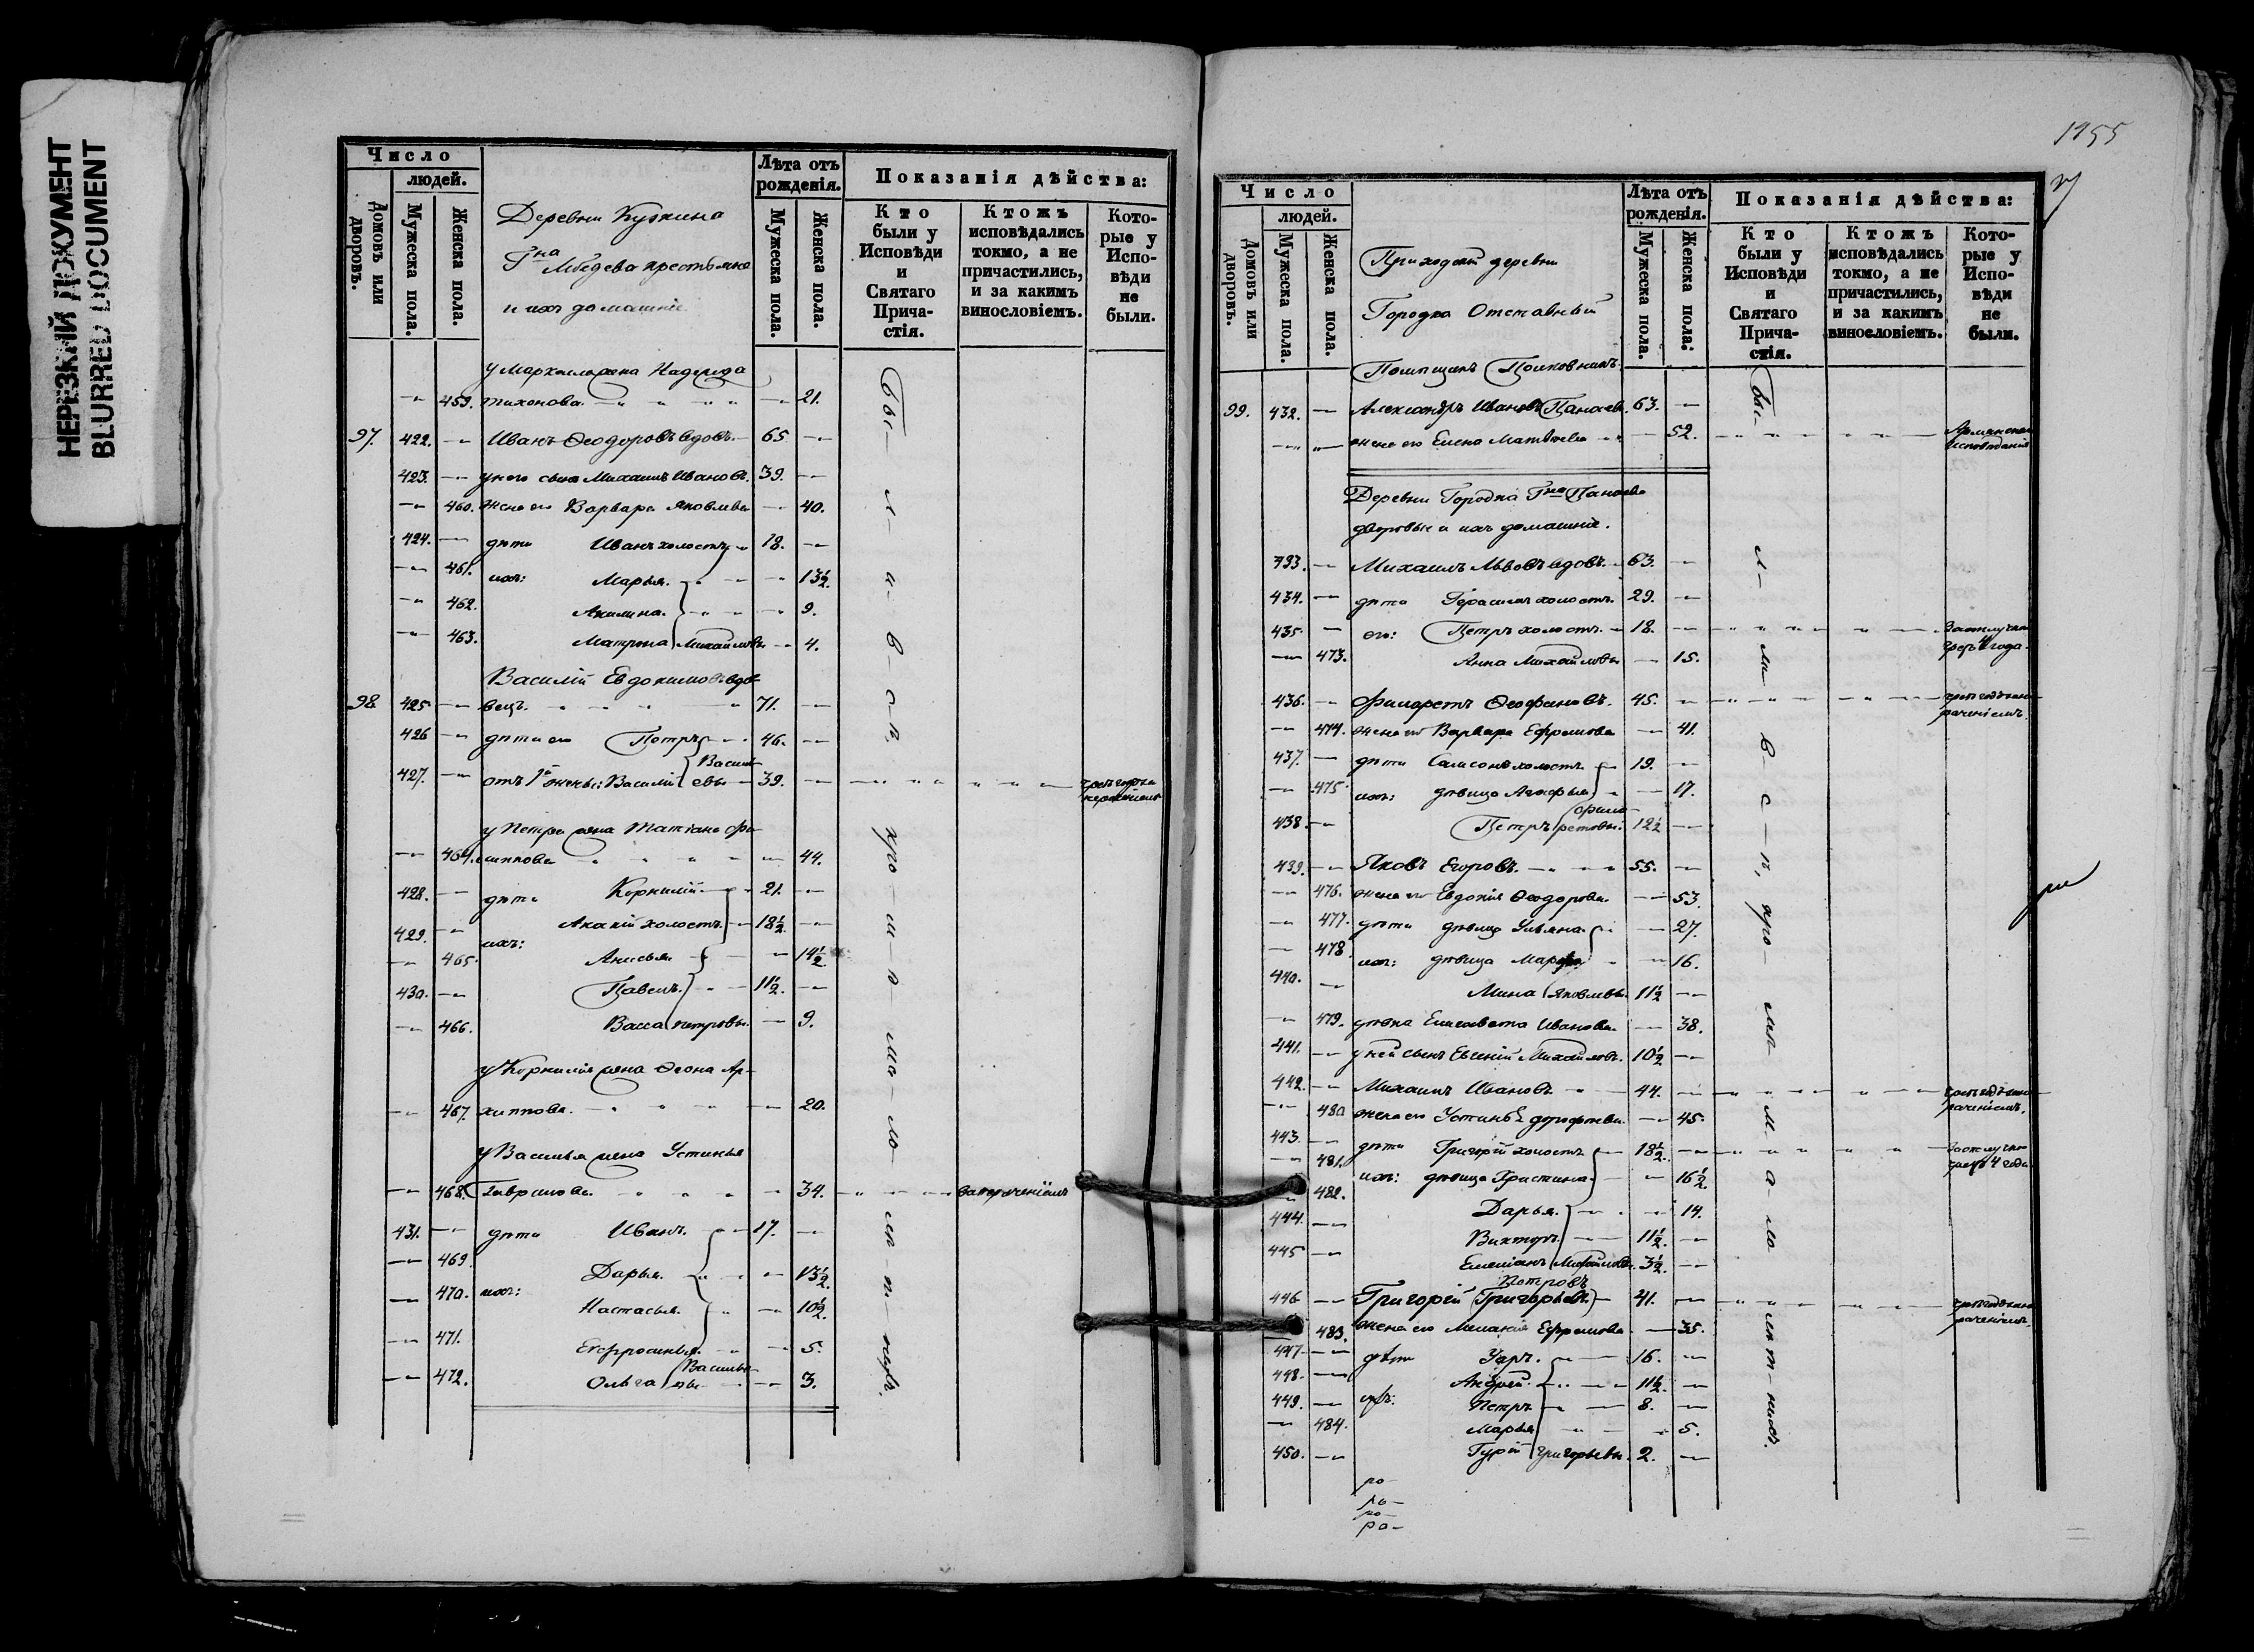 НЕРЕЗКИЙ ДОКУМЕНТ
BLURRED DOCUMENT
Число
людей.
Домовъ или дворовъ.
Мужеска пола.
Женска пола.
Деревни
Г.на Лебедева крестьяне
и ихъ домашніе.
Лѣта отъ рожденія.
Мужеска пола.
Женска пола.
Показанія дѣйства:
Кто были у Исповѣди и Святаго Прича- стія.
Ктожъ исповѣдались токмо, а не причастились, и за какимъ винословіемъ.
Кото- рые у Испо- вѣди не были.
жена Надежда
459. Тихонова. 21.
97. 422. Иванъ Ѳеодоровъ вдовъ. 65
423. у него сынъ Михаилъ Ивановъ. 39.
460. жена его Варвара Яковлева 40.
424. дѣти Иванъ холостъ 18.
461. ихъ: Марья. 13½.
462. Акилина. 9.
463. Матрона Михайловы 4.
Василій Евдокимовъ вдо-
98. 425 вецъ. 71.
426 дѣти его Петръ 46.
427. отъ 1й жены: Василій Василь- евы 39.
у Петра жена Татіана Фи-
464. липпова 44.
428. дѣти Корнилій 21.
429. ихъ: Акакій холостъ. 18½
465. Анисья 14½
430. Павелъ. 11½.
466. Васса Петровы. 9.
у Корнилія жена Ѳеона Ар-
467. хиппова. 20.
у Василья жена Устинья
468. Гаврилова. 34.
431. дѣти Иванъ. 17.
469 ихъ: Дарья. 13½.
470. Настасья. 10½.
471. Евфросинья. 5.
472. Ольга Василье- вы 3.
1155
Число
людей.
Домовъ или дворовъ.
Мужеска пола.
Женска пола.
Приходской деревни
Городка Отставный
Помѣщикъ Полковникъ
Лѣта отъ рожденія.
Мужеска пола.
Женска пола.
Показанія дѣйства:
Кто были у Исповѣди и Святаго Прича- стія.
Ктожъ исповѣдались токмо, а не причастились, и за какимъ винословіемъ.
Кото- рые у Испо- вѣди не были.
99. 432. Александръ Ивановъ Панаевъ. 63.
жена его Елена Матвѣева 52. Армянскаго исповѣданія
Деревни Городка Г.на Панаева
дворовые и ихъ домашніе.
433. Михаилъ Львовъ вдовъ. 63.
434. дѣти Герасимъ холостъ. 29.
435. его: Петръ холостъ. 18.
473. Анна Михайловы 15.
436. Филаретъ Ѳеофановъ. 45.
474. жена его Варвара Ефремова 41.
437. дѣти Самсонъ холостъ. 19.
475 ихъ: дѣвица Агафья 17.
438. Петръ Фила- ретовы. 12½
439. Яковъ Егоровъ. 55.
476. жена его Евдокія Ѳеодорова. 53.
477. дѣти дѣвица Ульяна 27.
478 ихъ: дѣвица Марфа 16.
440. Мина Яковлевы. 11½
479. дѣвка Елисавета Иванова. 38.
441. у ней сынъ Евгеній Михайловъ. 10½
442. Михаилъ Ивановъ 44.
480 жена его Устинья Дорофеева. 45.
443. дѣти Григорій холостъ 18½.
481. ихъ: дѣвица Христина. 16½.
482. Дарья. 14.
444. Викторъ. 11½.
445 Емеліанъ Михайловы. 3½.
Петровъ
446 Григорій (Григорьевъ) 41.
483. жена его Меланія Ефремова. 35.
447 дѣти 16.
448. ихъ: Андрей. 11½.
449. Петръ 8.
484. Марья 5.
450. Гурій Григорьевы. 2.